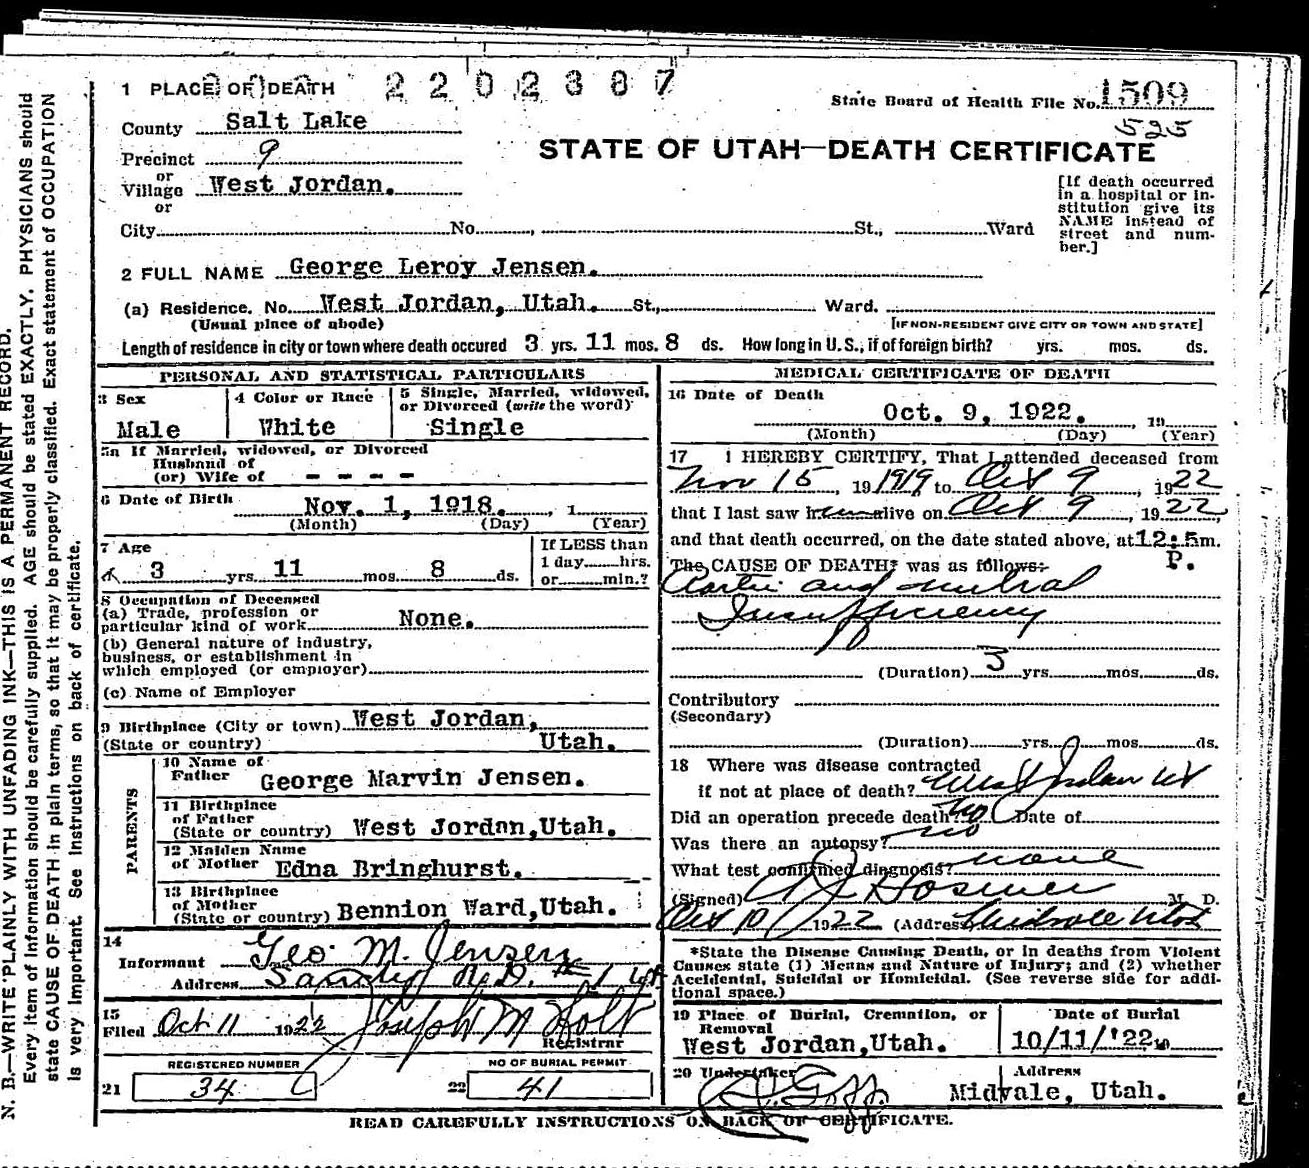 N. B.—WRITE PLAINLY WITH UNFADING INK—THIS IS A PERMANENT RECORD.
Every item of information should be carefully supplied. AGE should be stated EXACTLY. PHYSICIANS should
state CAUSE OF DEATH in plain terms, so that it may be properly classified. Exact statement of OCCUPATION
is very important. See instructions on back of certificate.
1 PLACE OF DEATH 2202387
State Board of Health File No. 1509
525
County Salt Lake
STATE OF UTAH—DEATH CERTIFICATE
Precinct 9
or
Village West Jordan.
or
[If death occurred
in a hospital or in-
stitution give its
NAME instead of
street and num-
ber.]
City No. , St., Ward
2 FULL NAME George Leroy Jensen.
(a) Residence. No. West Jordan, Utah. St., Ward.
(Usual place of abode) [IF NON-RESIDENT GIVE CITY OR TOWN AND STATE]
Length of residence in city or town where death occured 3 yrs. 11 mos. 8 ds. How long in U. S., if of foreign birth? yrs. mos. ds.
PERSONAL AND STATISTICAL PARTICULARS
3 Sex
Male
4 Color or Race
White
5 Single, Married, widowed,
or Divorced (write the word)
Single
5a If Married, widowed, or Divorced
Husband of
(or) Wife of - - - -
6 Date of Birth
Nov. 1, 1918. , 1
(Month) (Day) (Year)
7 Age
3 yrs. 11 mos. 8 ds.
If LESS than
1 day hrs.
or min.?
8 Occupation of Deceased
(a) Trade, profession or
particular kind of work None.
(b) General nature of industry,
business, or establishment in
which employed (or employer)
(c) Name of Employer
9 Birthplace (City or town) West Jordan,
(State or country) Utah.
PARENTS
10 Name of
Father George Marvin Jensen.
11 Birthplace
of Father
(State or country) West Jordan,Utah.
12 Maiden Name
of Mother Edna Bringhurst.
13 Birthplace
of Mother
(State or country) Bennion Ward,Utah.
14
Informant Geo. M. Jensen
Address Sandy R.D. #1
15
Filed Oct 11 1922 Joseph M Holt
Registrar
REGISTERED NUMBER
21 34
NO OF BURIAL PERMIT
22 41
MEDICAL CERTIFICATE OF DEATH
16 Date of Death
Oct. 9, 1922. , 19
(Month) (Day) (Year)
17 I HEREBY CERTIFY, That I attended deceased from
Nov 15 , 19 1919 to Oct 9 , 1922
that I last saw him alive on Oct 9 , 1922,
and that death occurred, on the date stated above, at 12:5m.
P.
The CAUSE OF DEATH* was as follows:
Aortic and mitral
Insufficiency
(Duration) 3 yrs. mos. ds.
Contributory
(Secondary)
(Duration) yrs. mos. ds.
18 Where was disease contracted
if not at place of death? West Jordan Ut
Did an operation precede death? No Date of
Was there an autopsy? no
What test confirmed diagnosis? none
(Signed) Hosmer M. D.
Oct 10, 1922 (Address) Midvale Utah
*State the Disease Causing Death, or in deaths from Violent
Causes state (1) Means and Nature of Injury; and (2) whether
Accidental, Suicidal or Homicidal. (See reverse side for addi-
tional space.)
19 Place of Burial, Cremation, or
Removal
West Jordan,Utah.
Date of Burial
10/11/'22 19
20 Undertaker
Goff
Address
Midvale, Utah.
READ CAREFULLY INSTRUCTIONS ON BACK OF CERTIFICATE.